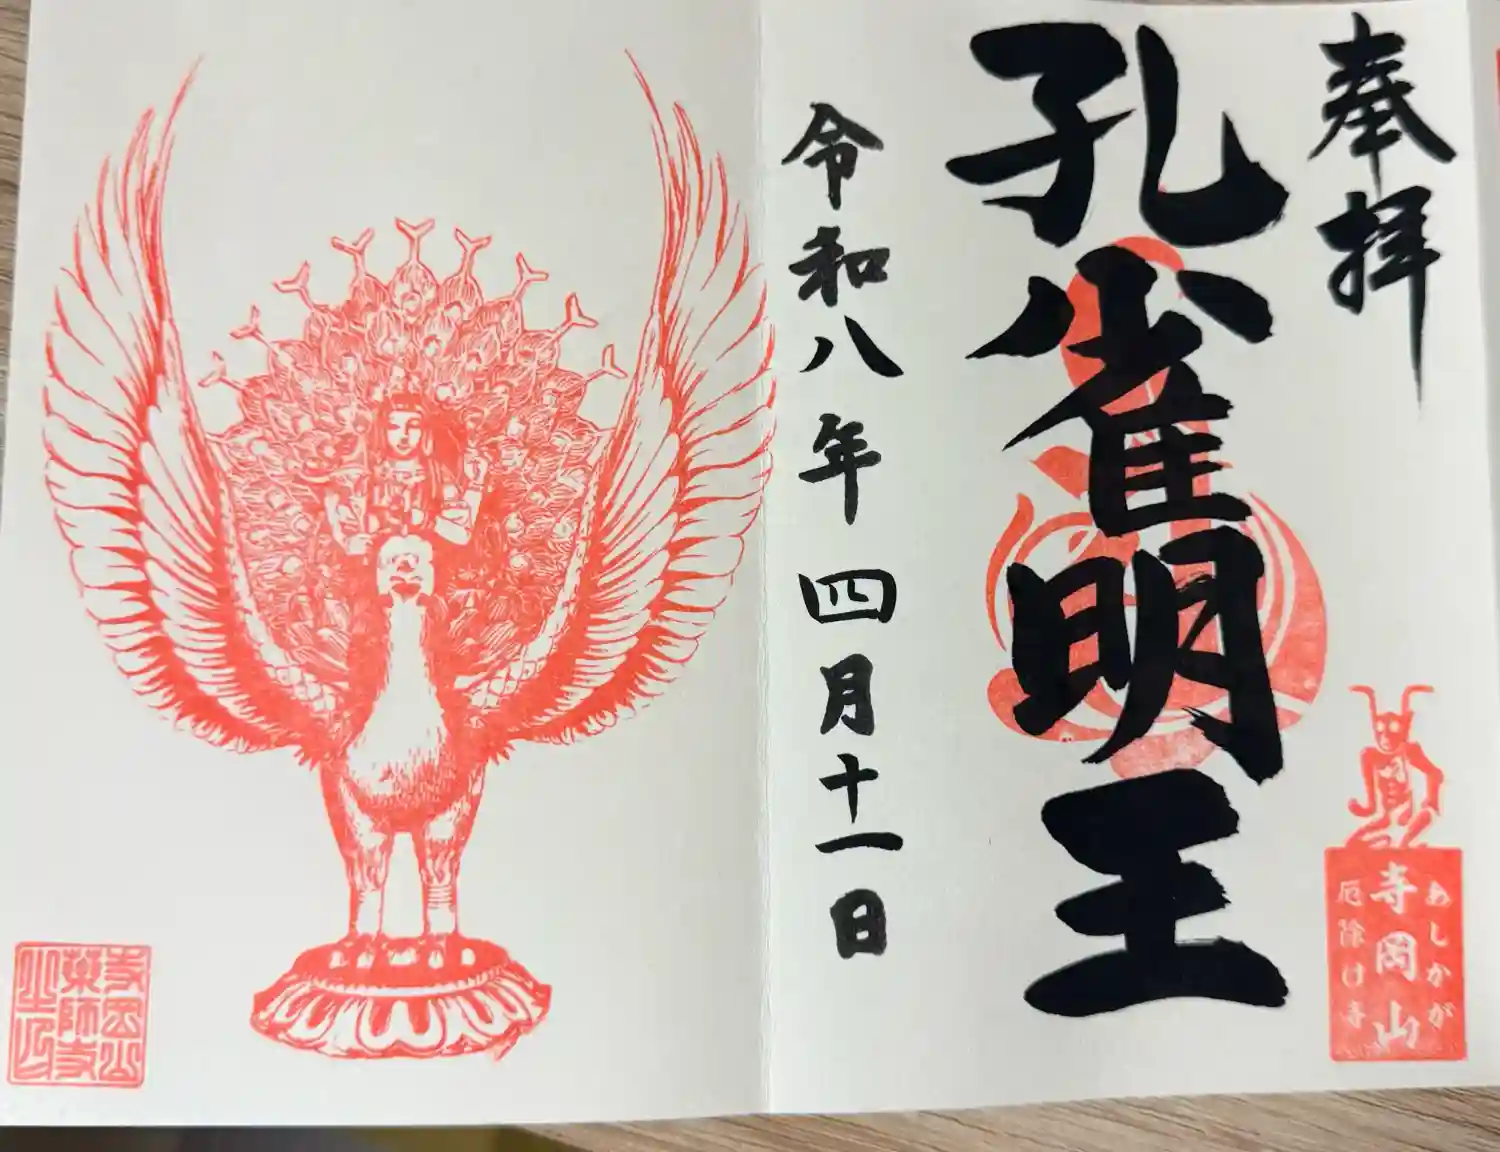 奉拝
孔雀明王
令和八年四月十一日
あしかが
寺岡山
厄除け寺
寺岡山
薬師寺
之印